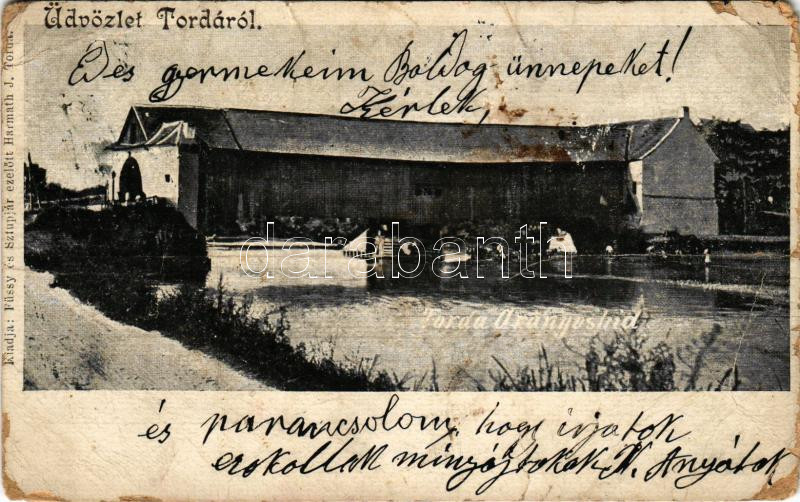 Üdvözlet Tordáról.
Édes gyermekeim Boldog ünnepeket!
Kérlek,
Kiadja: Füssy és Sztupjár ezelőtt Harmath J. Torda.
darabanth
Torda Aranyoshid
és parancsolom, hogy irjatok
csokollak minyájtokok K. Anyátok